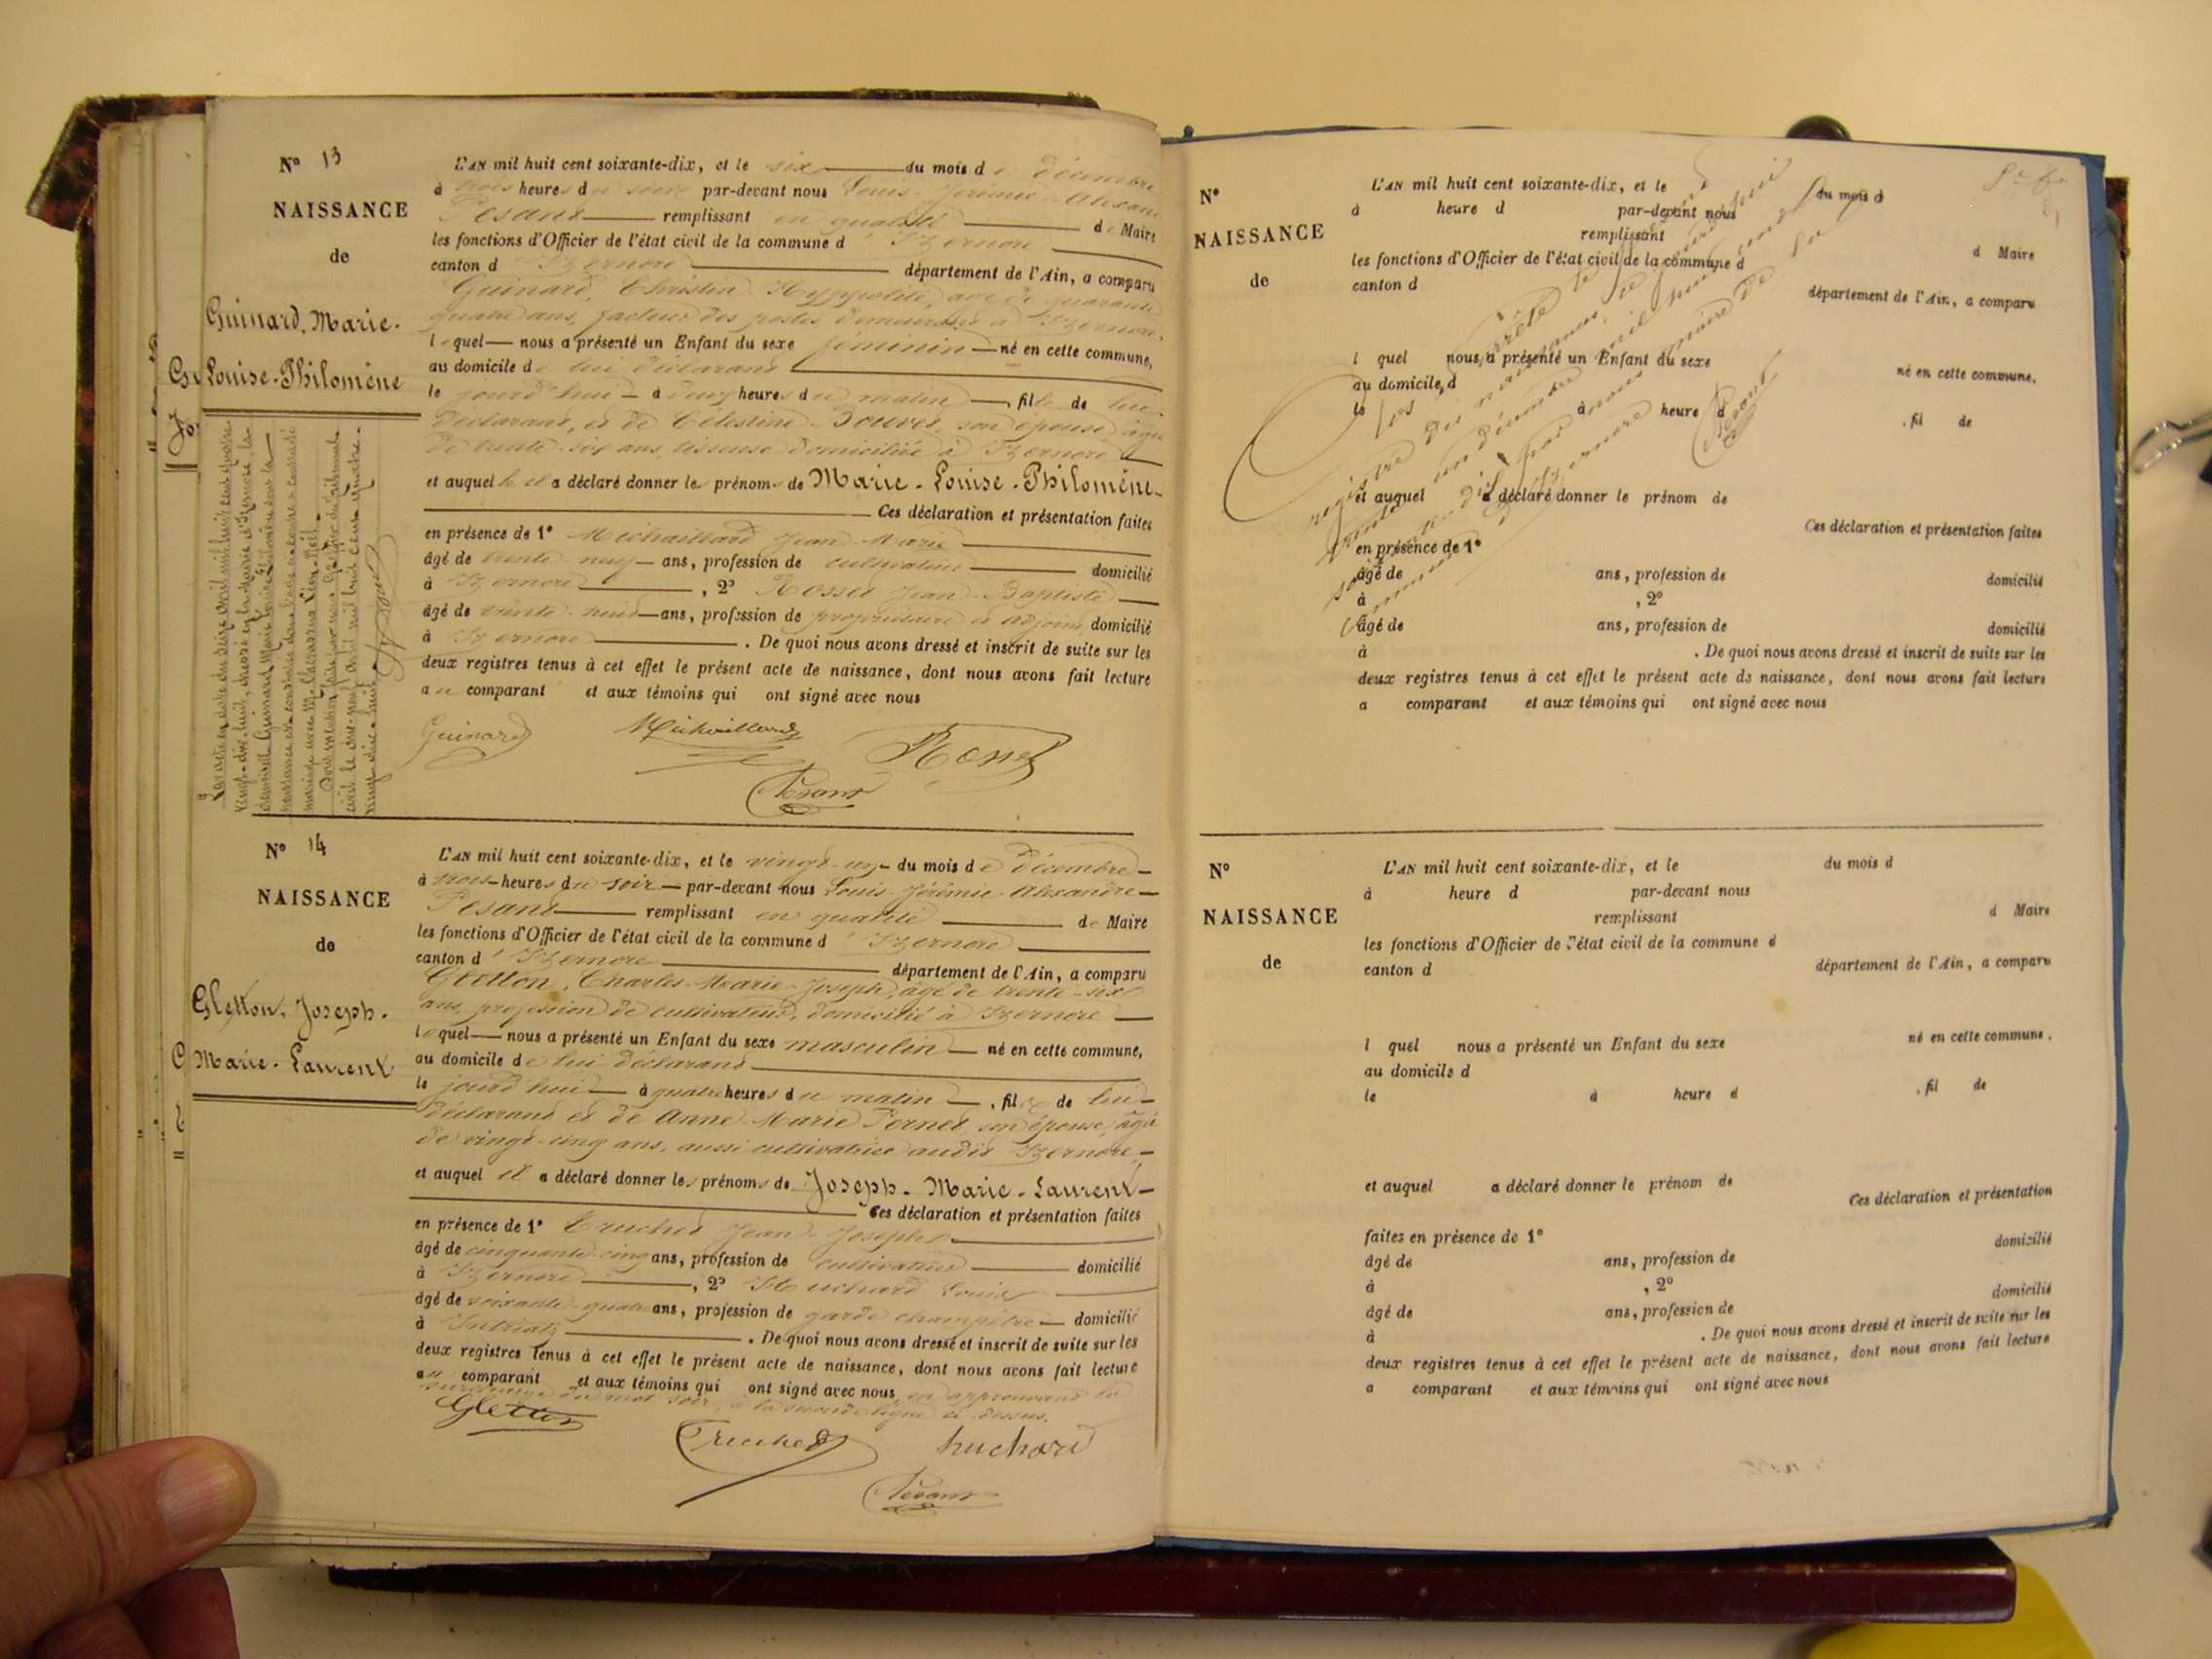 N° 13
NAISSANCE
de
Guinard, Marie-
Louise-Philomène
L'AN mil huit cent soixante-dix, et le six du mois de décembre
à trois heures du soir par-devant nous Louis-Jérémie-Alexan
Pesant remplissant en qualité de Maire
les fonctions d'Officier de l'état civil de la commune d'Izernore
canton d'Izernore département de l'Ain, a comparu
Guinard, Christin Hyppolite, âgé de quarante
quatre ans, facteur des postes demeurant à Izernore,
lequel nous a présenté un Enfant du sexe féminin né en cette commune,
au domicile de lui déclarant
le jourd'hui à deux heures du matin, fille de lui
déclarant, et de Célestine Bouvet, son épouse, âgée
de trente-six ans, tisseuse domiciliée à Izernore
et auquel il a déclaré donner les prénoms de Marie-Louise-Philomène-
Ces déclaration et présentation faites
en présence de 1° Michaillard Jean Marie
âgé de trente neuf ans, profession de cultivateur domicilié
à Izernore, 2° Rosset Jean-Baptiste
âgé de trente-huit ans, profession de propriétaire et adjoint, domicilié
à Izernore. De quoi nous avons dressé et inscrit de suite sur les
deux registres tenus à cet effet le présent acte de naissance, dont nous avons fait lecture
au comparant et aux témoins qui ont signé avec nous
Guinard Michaillard Rosset
Pesant
N° 14
NAISSANCE
de
Gletton, Joseph-
Marie-Laurent
L'AN mil huit cent soixante-dix, et le vingt-un du mois de décembre
à trois heures du soir par-devant nous Louis-Jérémie-Alexandre
Pesant remplissant en qualité de Maire
les fonctions d'Officier de l'état civil de la commune d'Izernore
canton d'Izernore département de l'Ain, a comparu
Gletton, Charles-Marie-Joseph, âgé de trente-six
ans, profession de cultivateur, domicilié à Izernore
lequel nous a présenté un Enfant du sexe masculin né en cette commune,
au domicile de lui déclarant
le jourd'hui à quatre heures du matin, fils de lui
déclarant et de Anne-Marie Pernet, son épouse, âgée
de vingt-cinq ans, aussi cultivatrice audit Izernore,
et auquel il a déclaré donner les prénoms de Joseph-Marie-Laurent-
Ces déclaration et présentation faites
en présence de 1° Truchet Jean-Joseph
âgé de cinquante-cinq ans, profession de cultivateur domicilié
à Izernore, 2° Huchard Louis
âgé de soixante-quatre ans, profession de garde champêtre domicilié
à Intriat. De quoi nous avons dressé et inscrit de suite sur les
deux registres tenus à cet effet le présent acte de naissance, dont nous avons fait lecture
au comparant et aux témoins qui ont signé avec nous en approuvant la
surcharge du mot soir, à la seconde ligne ci-dessus.
Gletton
Truchet huchard
Pesant
N°
NAISSANCE
de
L'AN mil huit cent soixante-dix, et le du mois d
à heure d par-devant nous
remplissant d Maire
les fonctions d'Officier de l'état civil de la commune d
canton d département de l'Ain, a comparu
l quel nous a présenté un Enfant du sexe né en cette commune,
au domicile d
le à heure d, fil de
et auquel a déclaré donner le prénom de
Ces déclaration et présentation faites
en présence de 1°
âgé de ans, profession de domicilié
à , 2°
âgé de ans, profession de domicilié
à . De quoi nous avons dressé et inscrit de suite sur les
deux registres tenus à cet effet le présent acte de naissance, dont nous avons fait lecture
a comparant et aux témoins qui ont signé avec nous
Pesant
N°
NAISSANCE
de
L'AN mil huit cent soixante-dix, et le du mois d
à heure d par-devant nous
remplissant d Maire
les fonctions d'Officier de l'état civil de la commune d
canton d département de l'Ain, a comparu
l quel nous a présenté un Enfant du sexe né en cette commune,
au domicile d
le à heure d, fil de
et auquel a déclaré donner le prénom de
Ces déclaration et présentation
faites en présence de 1° domicilié
âgé de ans, profession de
à , 2° domicilié
âgé de ans, profession de
à . De quoi nous avons dressé et inscrit de suite sur les
deux registres tenus à cet effet le présent acte de naissance, dont nous avons fait lecture
a comparant et aux témoins qui ont signé avec nous